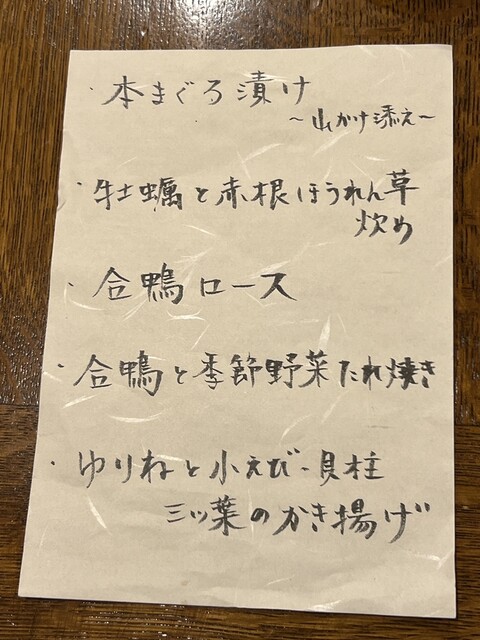 ・本まぐろ漬け
～山かけ添え～
・牡蠣と赤根ほうれん草
炒め
・合鴨ロース
・合鴨と季節野菜たれ焼き
・ゆりねと小えび・貝柱
三ッ葉のかき揚げ